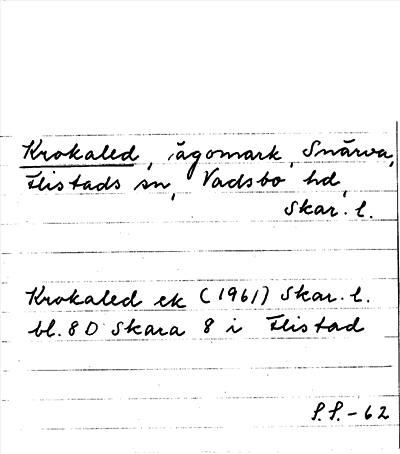 Krokaled, ägomark, Snärva,
Flistads sn, Vadsbo hd,
Skar. l.
Krokaled ek (1961) Skar. l.
bl. 8 D Skara 8 i Flistad
S.S.-62